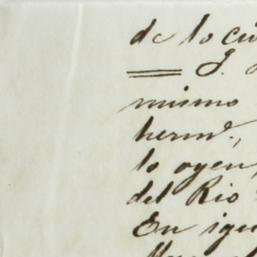 de lo ci
mismo
herm.ª,
lo oyen,
del Rio
En igu